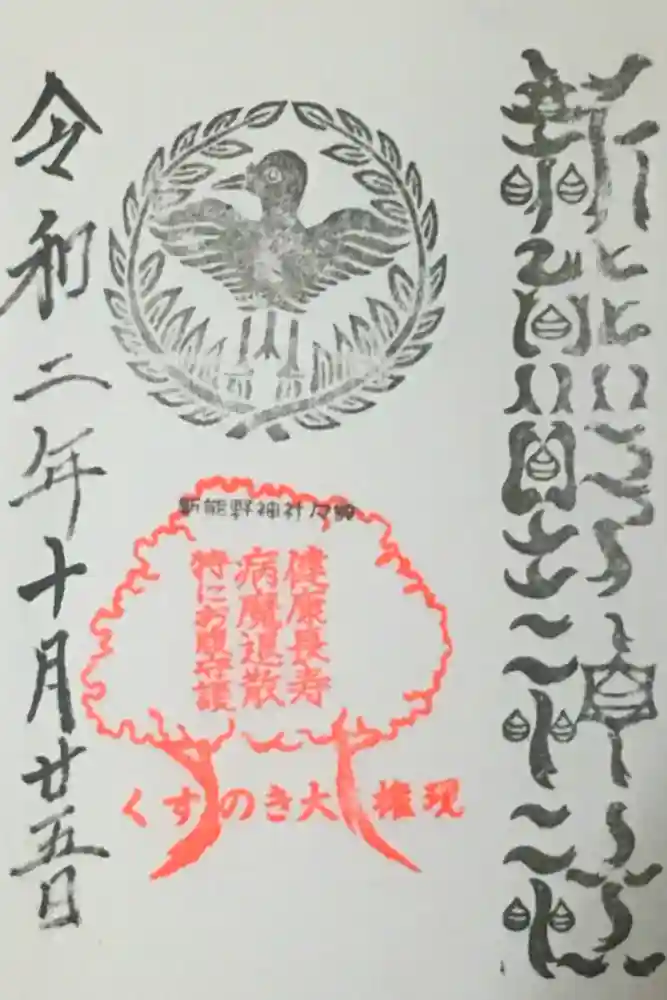 新熊野神社
新熊野神社乃
健康長寿
病魔退散
特にお腹守護
くすのき大権現
令和二年十月廿五日